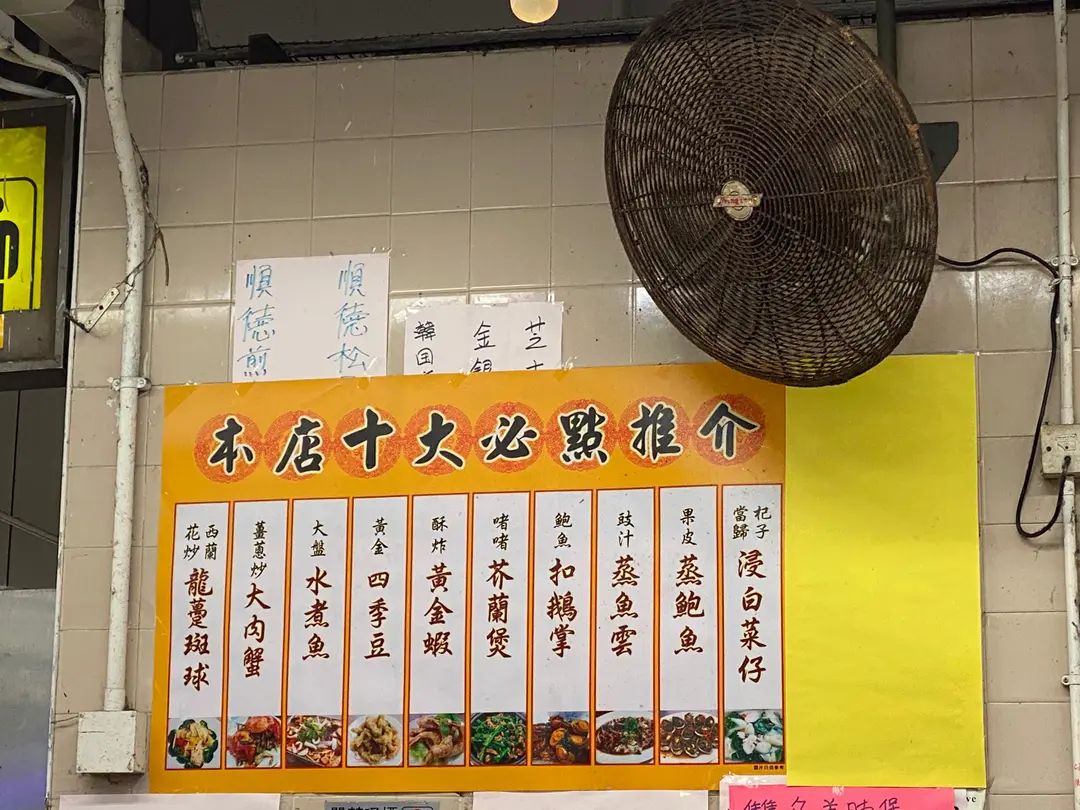 順德煎
順德松
韓国
金銀
芝士
本店十大必點推介
西蘭花炒龍躉斑球
薑蔥炒大肉蟹
大盤水煮魚
黃金四季豆
酥炸黃金蝦
啫啫芥蘭煲
鮑魚扣鵝掌
豉汁蒸魚雲
果皮蒸鮑魚
杞子當歸浸白菜仔
圖片只供參考